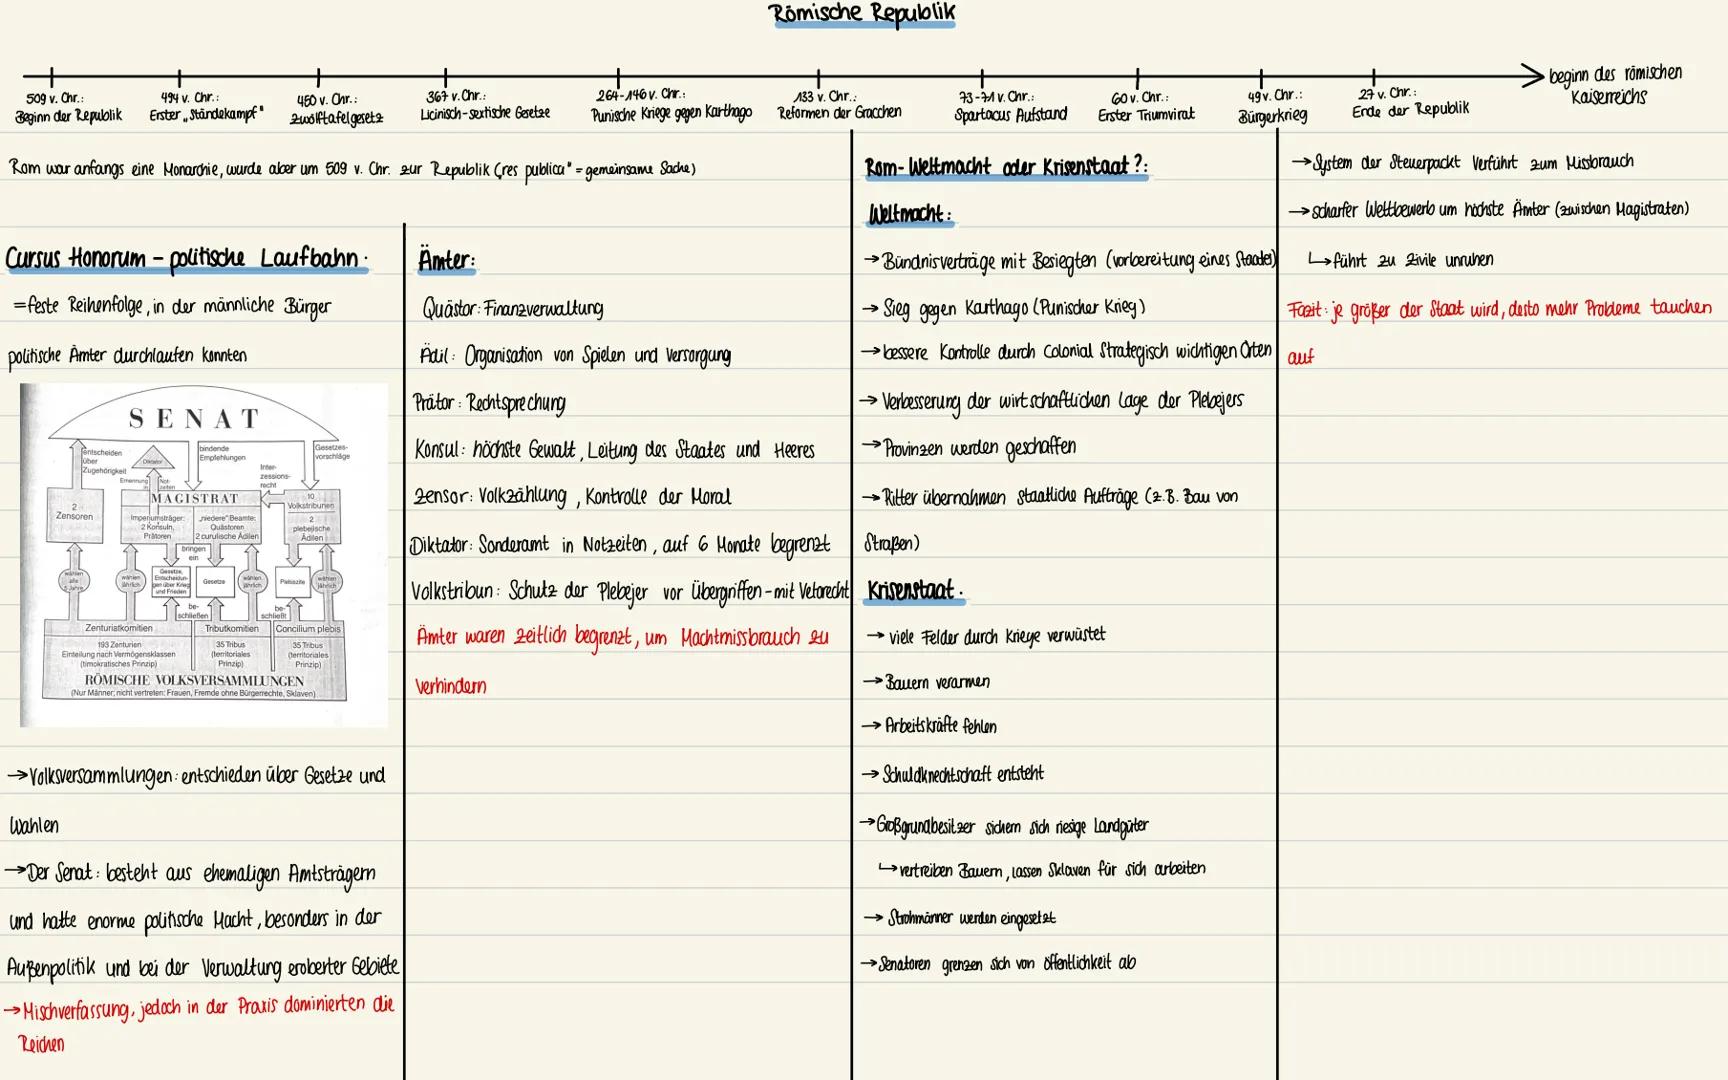 Römische Republik
509 v. Chr.:
Beginn der Republik
494 v. Chr.:
Erster „Ständekampf"
450 v. Chr.:
Zwölftafelgesetz
367 v. Chr.:
Licinisch-sextische Gesetze
264-146 v. Chr.:
Punische Kriege gegen Karthago
133 v. Chr.:
Reformen der Gracchen
73-71 v. Chr.:
Spartacus Aufstand
60 v. Chr.:
Erster Triumvirat
49 v. Chr.:
Bürgerkrieg
27 v. Chr.:
Ende der Republik
beginn des römischen
Kaiserreichs
Rom war anfangs eine Monarchie, wurde aber um 509 v. Chr. zur Republik („res publica" = gemeinsame Sache)
Cursus Honorum – politische Laufbahn:
= feste Reihenfolge, in der männliche Bürger
politische Ämter durchlaufen konnten
SENAT
entscheiden
über
Zugehörigkeit
Diktator
Ernennung
in
Not-
zeiten
bindende
Empfehlungen
Inter-
zessions-
recht
Gesetzes-
vorschläge
2
Zensoren
MAGISTRAT
Imperiumsträger:
2 Konsuln,
Prätoren
„niedere" Beamte:
Quästoren
2 curulische Ädilen
10
Volkstribunen
2
plebejische
Ädilen
bringen
ein
wählen
alle
5 Jahre
wählen
jährlich
Gesetze,
Entscheidun-
gen über Krieg
und Frieden
Gesetze
wählen
jährlich
Plebiszite
wählen
jährlich
be-
schließen
be-
schließt
Zenturiatkomitien
193 Zenturien
Einteilung nach Vermögensklassen
(timokratisches Prinzip)
Tributkomitien
35 Tribus
(territoriales
Prinzip)
Concilium plebis
35 Tribus
(territoriales
Prinzip)
RÖMISCHE VOLKSVERSAMMLUNGEN
(Nur Männer; nicht vertreten: Frauen, Fremde ohne Bürgerrechte, Sklaven)
→ Volksversammlungen: entschieden über Gesetze und
Wahlen
→ Der Senat: besteht aus ehemaligen Amtsträgern
und hatte enorme politische Macht, besonders in der
Außenpolitik und bei der Verwaltung eroberter Gebiete
→ Mischverfassung, jedoch in der Praxis dominierten die
Reichen
Ämter:
Quästor: Finanzverwaltung
Ädil: Organisation von Spielen und Versorgung
Prätor: Rechtsprechung
Konsul: höchste Gewalt, Leitung des Staates und Heeres
Zensor: Volkzählung, Kontrolle der Moral
Diktator: Sonderamt in Notzeiten, auf 6 Monate begrenzt
Volkstribun: Schutz der Plebejer vor Übergriffen – mit Vetorecht
Ämter waren zeitlich begrenzt, um Machtmissbrauch zu
verhindern
Rom - Weltmacht oder Krisenstaat?:
Weltmacht:
→ Bündnisverträge mit Besiegten (vorbereitung eines Staates)
→ Sieg gegen Karthago (Punischer Krieg)
→ bessere Kontrolle durch Colonial Strategisch wichtigen Orten
→ Verbesserung der wirtschaftlichen Lage der Plebejers
→ Provinzen werden geschaffen
→ Ritter übernahmen staatliche Aufträge (z.B. Bau von
Straßen)
Krisenstaat:
→ viele Felder durch Kriege verwüstet
→ Bauern verarmen
→ Arbeitskräfte fehlen
→ Schuldknechtschaft entsteht
→ Großgrundbesitzer sichern sich riesige Landgüter
↳ vertreiben Bauern, lassen Sklaven für sich arbeiten
→ Strohmänner werden eingesetzt
→ Senatoren grenzen sich von öffentlichkeit ab
→ System der Steuerpackt Verführt zum Missbrauch
→ scharfer Wettbewerb um höchste Ämter (zwischen Magistraten)
↳ führt zu zivile unruhen
Fazit: je größer der Staat wird, desto mehr Probleme tauchen
auf